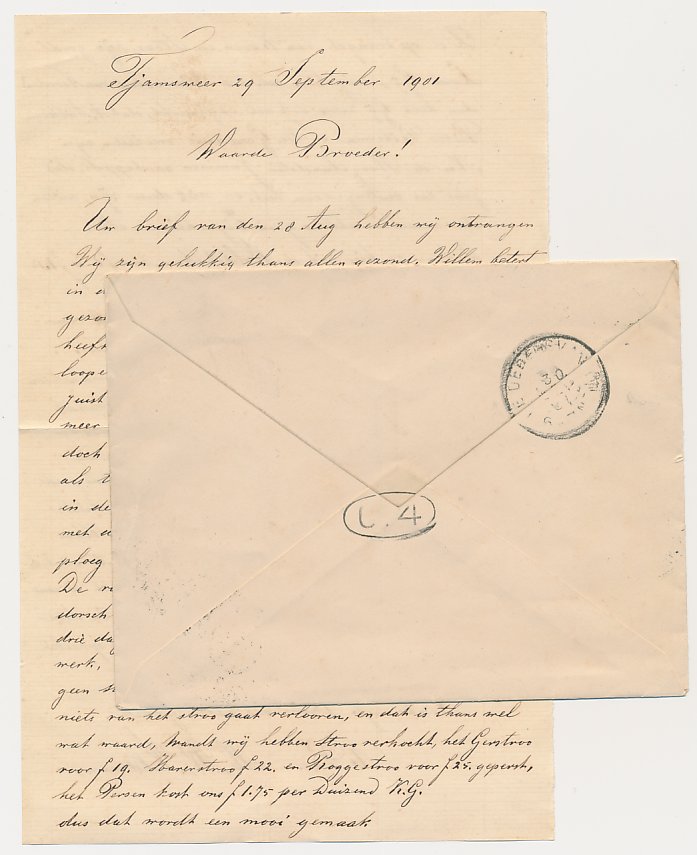 Tjamsweer 29 September 1901
Waarde Broeder!
Uw brief van den 28 Aug hebben wij ontvangen
Wij zijn gelukkig thans allen gezond. Willem betert
in
gezon
heeft
loope
juist
meer
doch
als
in de
met
ploeg
De
dorsch
drie da
werk,
geen
niets van het stroo gaat verlooren, en dat is thans wel
wat waard, Wandt wij hebben Stroo verkocht, het Gerstroo
voor f 19. Haverstroo f 22. en Roggestroo voor f 25. geperst,
het Persen kost ons f 1.75 per Duizend K.G.
dus dat wordt een mooi gemaak
30
L.4